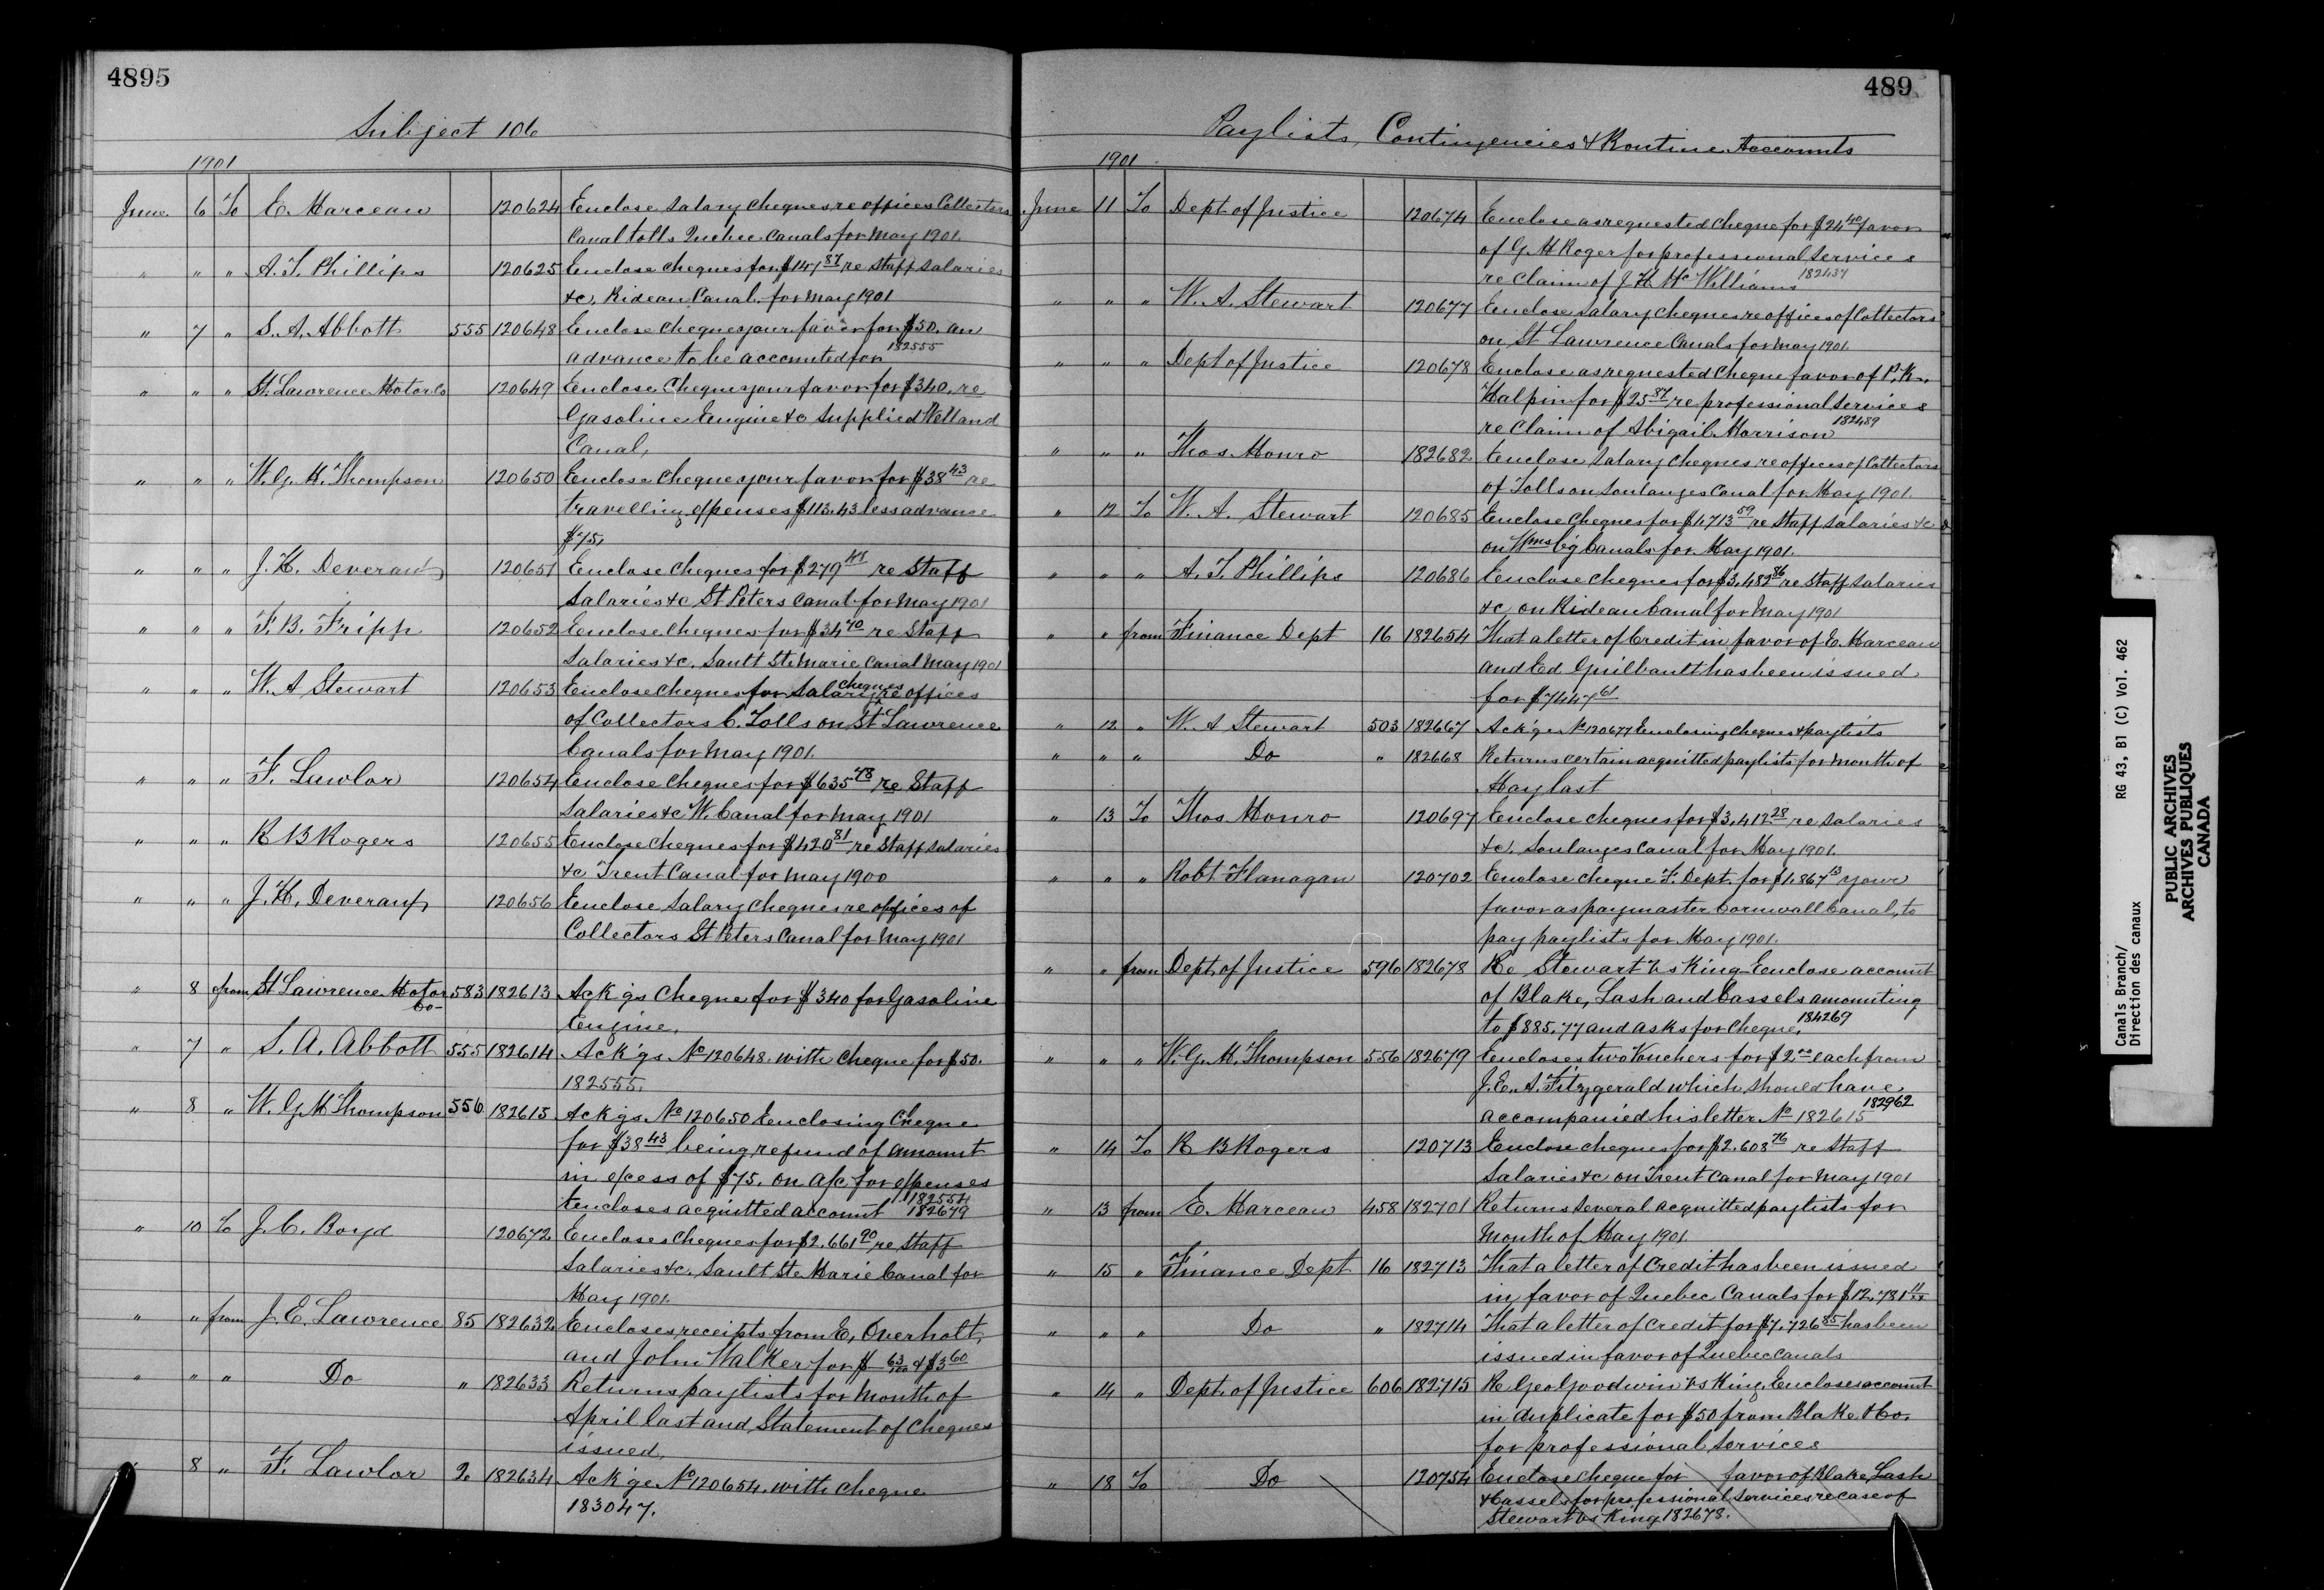 4895
Subject 106
1901
June 6 To E. Marceau 120624 Enclose Salary Cheques re offices Collectors
Canal tolls Quebec Canals for May 1901
" " " A. T. Phillips 120625 Enclose cheques for $147 87 re Staff Salaries
&c. Rideau Canal for May 1901
" 7 " S. A. Abbott 555 120648 Enclose cheque your favor for $50. an
advance to be accounted for 182555
" " " St. Lawrence Motor Co 120649 Enclose Cheque your favor for $340. re
Gasoline Engine &c supplied Welland
Canal,
" " " W. G. M. Thompson 120650 Enclose Cheque your favor for $38 43 re
travelling expenses $113.43 less advance
$75.
" " " J. H. Deveraux 120651 Enclose Cheques for $279 re Staff
Salaries &c St Peters Canal for May 1901
" " " F. B. Fripp 120652 Enclose Cheques for $34 40 re Staff
Salaries &c. Sault Ste Marie Canal May 1901
" " " W. A Stewart 120653 Enclose Cheques for Salary cheques re offices
of Collectors C. Tolls on St Lawrence
Canals for May 1901.
" " " F. Lawlor 120654 Enclose Cheques for $635 48 re Staff
Salaries &c W. Canal for May 1901
" " " R B Rogers 120655 Enclose Cheques for $420 81 re Staff Salaries
&c Trent Canal for May 1900
" " " J. H. Deveraux 120656 Enclose Salary Cheques re offices of
Collectors St Peters Canal for May 1901
" 8 from St Lawrence Motor Co- 583 182613 Ack'gs Cheque for $340 for Gasoline
Engine.
" 7 " S. A. Abbott 555 182614 Ack'gs No 120648 with Cheque for $50.
182555.
" 8 " W. G M Thompson 556 182615 Ack'gs No 120650 Enclosing Cheque
for $38 43 being refund of amount
in excess of $75. on a/c for expenses
Encloses acquitted account 182554 182679
" 10 To J. C. Boyd 120672 Encloses Cheques for $2.661 90 re Staff
Salaries &c. Sault Ste Marie Canal for
May 1901.
" " from J. E. Lawrence 85 182632 Encloses receipts from E, Overholt,
and John Walker for $ 63/100 & $3 60
" " " Do " 182633 Returns paylists for Month of
April last and Statement of Cheques
issued,
" 8 " F. Lawlor 2 182634 Ack'ge No 120654 with Cheque
183047.
489
Paylists, Contingencies & Routine Accounts
1901
June 11 To Dept of Justice 120674 Enclose as requested Cheque for $24 40 favor
of G. M Roger for professional services
re Claim of J. H. McWilliams 182437
" " " W. A. Stewart 120677 Enclose Salary Cheques re offices of Collectors
on St Lawrence Canals for May 1901.
" " " Dept of Justice 120678 Enclose as requested Cheque favor of P. K.
Halpin for $25 87 re professional services
re Claim of Abigail Morrison 182489
" " " Thos. Monro 182682 Enclose Salary Cheques re offices of Collectors
of Tolls on Soulanges Canal for May 1901.
" 12 To W. A. Stewart 120685 Enclose Cheques for $1,713 59 re Staff Salaries &c
on Wmsb'g Canals for May 1901.
" " " A. T. Phillips 120686 Enclose Cheques for $3,482 86 re Staff Salaries
&c on Rideau Canal for May 1901
" " from Finance Dept 16 182654 That a letter of Credit in favor of E. Marceau
and Ed Guilbault has been issued
for $7447 61
" 12 " W. A Stewart 503 182667 Ack'ge No 120677 Enclosing Cheques & paylists
" " " Do " 182668 Returns certain acquitted paylists for month of
May last
" 13 To Thos. Monro 120697 Enclose Cheques for $3,412.28 re Salaries
&c. Soulanges Canal for May 1901.
" " " Robt Flanagan 120702 Enclose Cheque F. Dept. for $1,867 13 your
favor as paymaster Cornwall Canal, to
pay paylists for May 1901.
" " from Dept. of Justice 596 182678 Re Stewart vs King Enclose account
of Blake, Lash and Cassels amounting
to $885.77 and asks for Cheque. 184269
" " " W. G. M. Thompson 556 182679 Encloses two Vouchers for $2 00 each from
J. E. A. Fitzgerald which should have
accompanied his letter No 182615 182962
" 14 To R B Rogers 120713 Enclose cheques for $2.608 76 re Staff
Salaries &c on Trent Canal for May 1901
" 13 from E. Marceau 458 182701 Returns several acquitted paylists for
Month of May 1901.
" 15 " Finance Dept 16 182713 That a letter of Credit has been issued
in favor of Quebec Canals for $12,781 11
" " " Do " 182714 That a letter of credit for $7,726 85 has been
issued in favor of Quebec Canals
" 14 " Dept. of Justice 606 182715 Re Geo Goodwin vs King. Encloses account
in duplicate for $50 from Blake & Co.
for professional services
" 18 To Do 120754 Enclose Cheque for favor of Blake, Lash
& Cassels for professional services re case of
Stewart vs King 182678.
Canals Branch/ RG 43, B1 (C) Vol. 462
Direction des canaux
PUBLIC ARCHIVES
ARCHIVES PUBLIQUES
CANADA